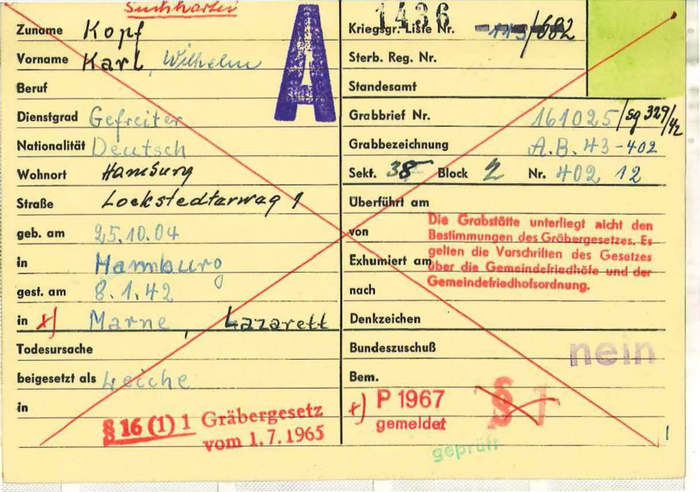 Suchkartei
A
Zuname Kopf
Vorname Karl, Wilhelm
Beruf
Dienstgrad Gefreiter
Nationalität Deutsch
Wohnort Hamburg
Straße Lockstedterweg 1
geb. am 25.10.04
in Hamburg
gest. am 8.1.42
in x) Marne, Lazarett
Todesursache
beigesetzt als Leiche
in
§ 16 (1) 1 Gräbergesetz
vom 1.7.1965
1436
Kriegsgr. Liste Nr. 113/682
Sterb. Reg. Nr.
Standesamt
Grabbrief Nr. 161025/sg 329/42
Grabbezeichnung A.B.43-402
Sekt. 38 Block 2 Nr. 402 12
Überführt am
von
Die Grabstätte unterliegt nicht den
Bestimmungen des Gräbergesetzes. Es
gelten die Vorschriften des Gesetzes
über die Gemeindefriedhöfe und der
Gemeindefriedhofsordnung.
Exhumiert am
nach
Denkzeichen
Bundeszuschuß nein
Bem.
x) P 1967
gemeldet
§ 1
geprüft